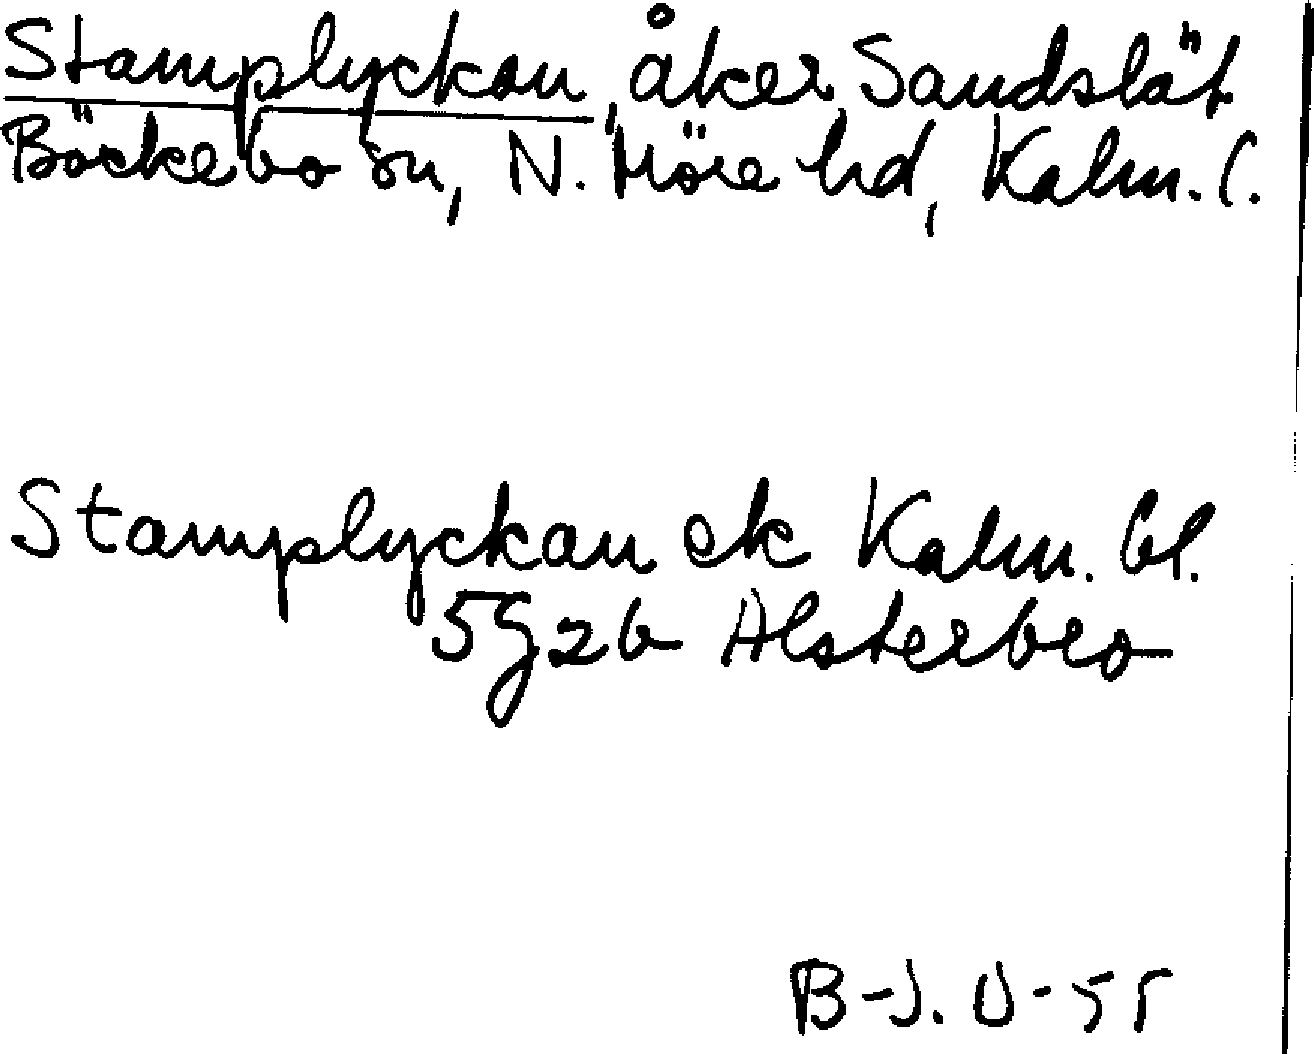 Stamplyckan, åker, Sandslät
Bäckebo sn, N. Möre hd, Kalm. l.
Stamplyckan ek Kalm. bl.
5g2b Alsterbro
B-J. O-55